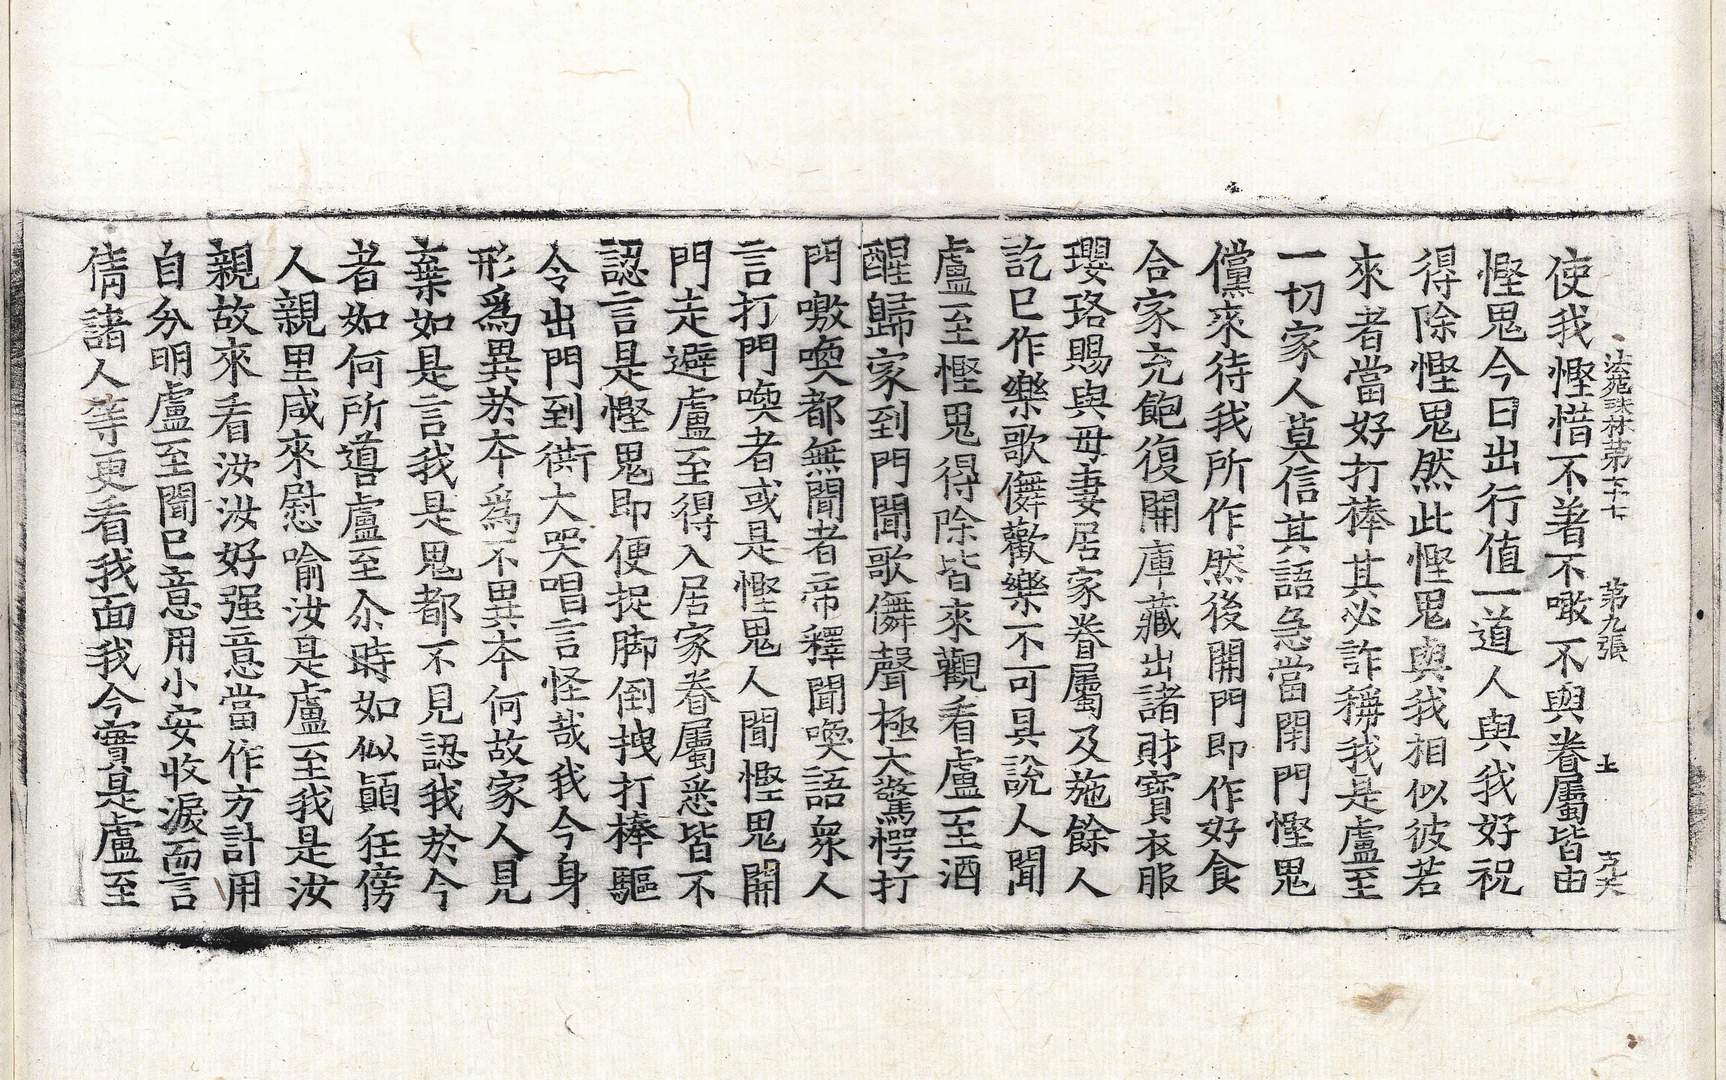 法苑珠林第七十七 第九張 士
使我慳惜不著不噉不與眷屬皆由
慳鬼今日出行值一道人與我好祝
得除慳鬼然此慳鬼與我相似彼若
來者當好打棒其必詐稱我是盧至
一切家人莫信其語急當閉門慳鬼
儻來待我所作然後開門即作好食
合家充飽復開庫藏出諸財寶衣服
瓔珞賜與母妻居家眷屬及施餘人
訖已作樂歌儛歡樂不可具說人聞
盧至慳鬼得除皆來觀看盧至酒
醒歸家到門聞歌儛聲極大驚愕打
門噭喚都無聞者帝釋聞喚語衆人
言打門喚者或是慳鬼人聞慳鬼開
門走避盧至得入居家眷屬悉皆不
認言是慳鬼即便捉脚倒拽打棒驅
令出門到街大哭唱言怪哉我今身
形爲異於本爲不異本何故家人見
棄如是言我是鬼都不見認我於今
者如何所導盧至尒時如似顚狂傍
人親里咸來慰喻汝是盧至我是汝
親故來看汝汝好强意當作方計用
自分明盧至聞已意用小安收淚而言
倩諸人等更看我面我今實是盧至